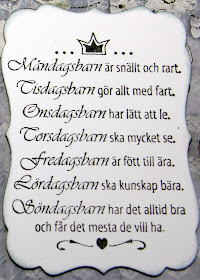 Måndagsbarn är snällt och rart.
Tisdagsbarn gör allt med fart.
Onsdagsbarn har lätt att le.
Torsdagsbarn ska mycket se.
Fredagsbarn är fött till ära.
Lördagsbarn ska kunskap bära.
Söndagsbarn har det alltid bra
och får det mesta de vill ha.